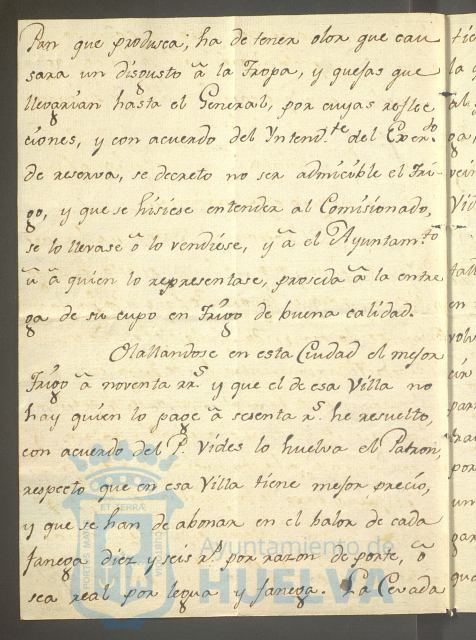 Pan que produsca; ha de tener olor que cau
sara un disgusto â la Tropa, y quejas que
llegarian hasta el General, por cuyas reflec
ciones, y con acuerdo del Yntend.te del Exer.do
de reserva, se decreto no ser admicible el Tri-
go, y que se hisiese entender al Comisionado,
se lo llevase ô lo vendiese, y â el Ayuntam.to
û â quien lo representase, proseda â la entre
ga de su cupo en Trigo de buena calidad.
Ollallandose en esta Ciudad el mejor
Trigo â noventa rr.s y que el de esa Villa no
hay quien lo page â sesenta r.s he resuelto,
con acuerdo del P. Vides lo huelva el Patron,
respecto que en esa Villa tiene mejor precio,
y que se han de abonar en el balor de cada
fanega diez y seis r.s por razon de porte, ô
sea real por legua y fanega. La Cevada
PORTUS MARIS ET TERRÆ CUSTODIA
Ayuntamiento de
HUELVA